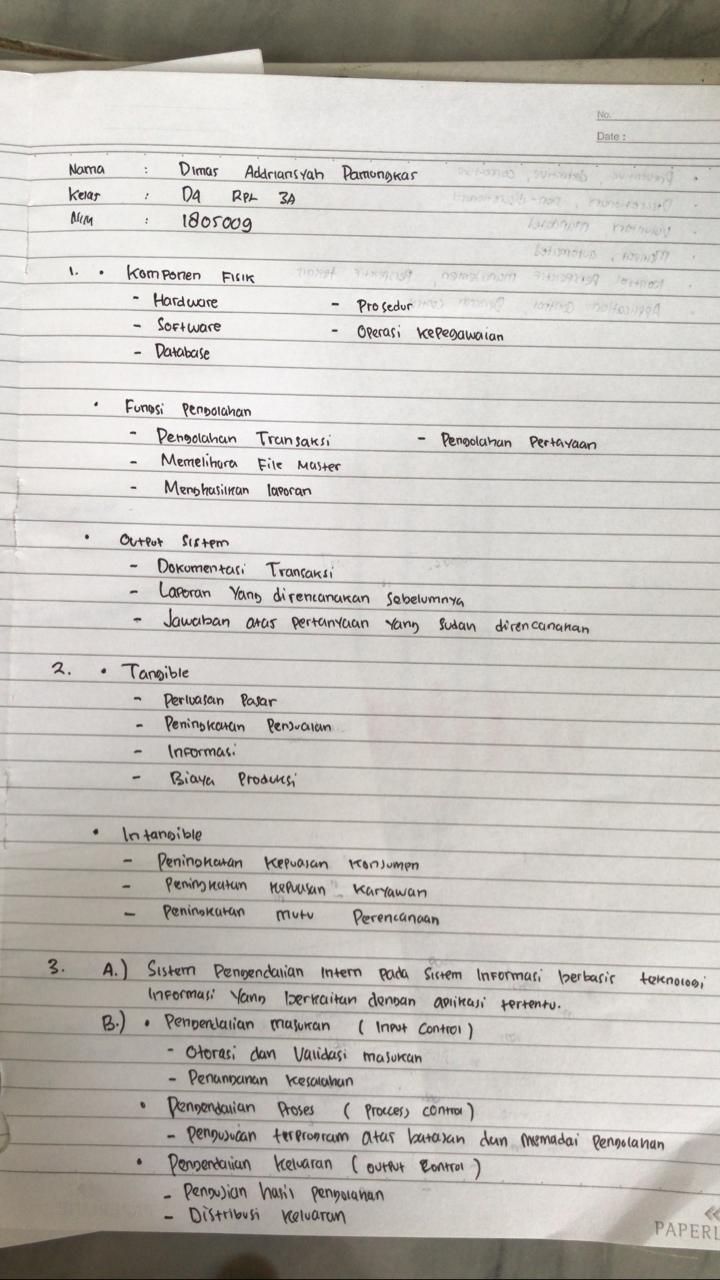 No.
Date :
Nama : Dimas Addriansyah Pamungkas
Kelas : D4 RPL 3A
NIM : 1805009
1. • Komponen Fisik
- Hardware - Prosedur
- Software - Operasi Kepegawaian
- Database
• Fungsi Pengolahan
- Pengolahan Transaksi - Pengolahan Pertayaan
- Memelihara File Master
- Menghasilkan laporan
• Output Sistem
- Dokumentasi Transaksi
- Laporan Yang direncanakan sebelumnya
- Jawaban atas pertanyaan yang sudah direncanakan
2. • Tangible
- Perluasan Pasar
- Peningkatan Penjualan
- Informasi
- Biaya Produksi
• Intangible
- Peningkatan Kepuasan Konsumen
- Peningkatan Kepuasan Karyawan
- Peningkatan mutu Perencanaan
3. A.) Sistem Pengendalian Intern pada Sistem Informasi berbasis teknologi
Informasi Yang berkaitan dengan aplikasi tertentu.
B.) • Pengendalian masukan ( Input Control )
- Otorasi dan Validasi masukan
- Penanganan Kesalahan
• Pengendalian Proses ( Procces control )
- Pengujian terprogram atas batasan dan memadai Pengolahan
• Pengendalian Keluaran ( output control )
- Pengujian hasil pengolahan
- Distribusi Keluaran